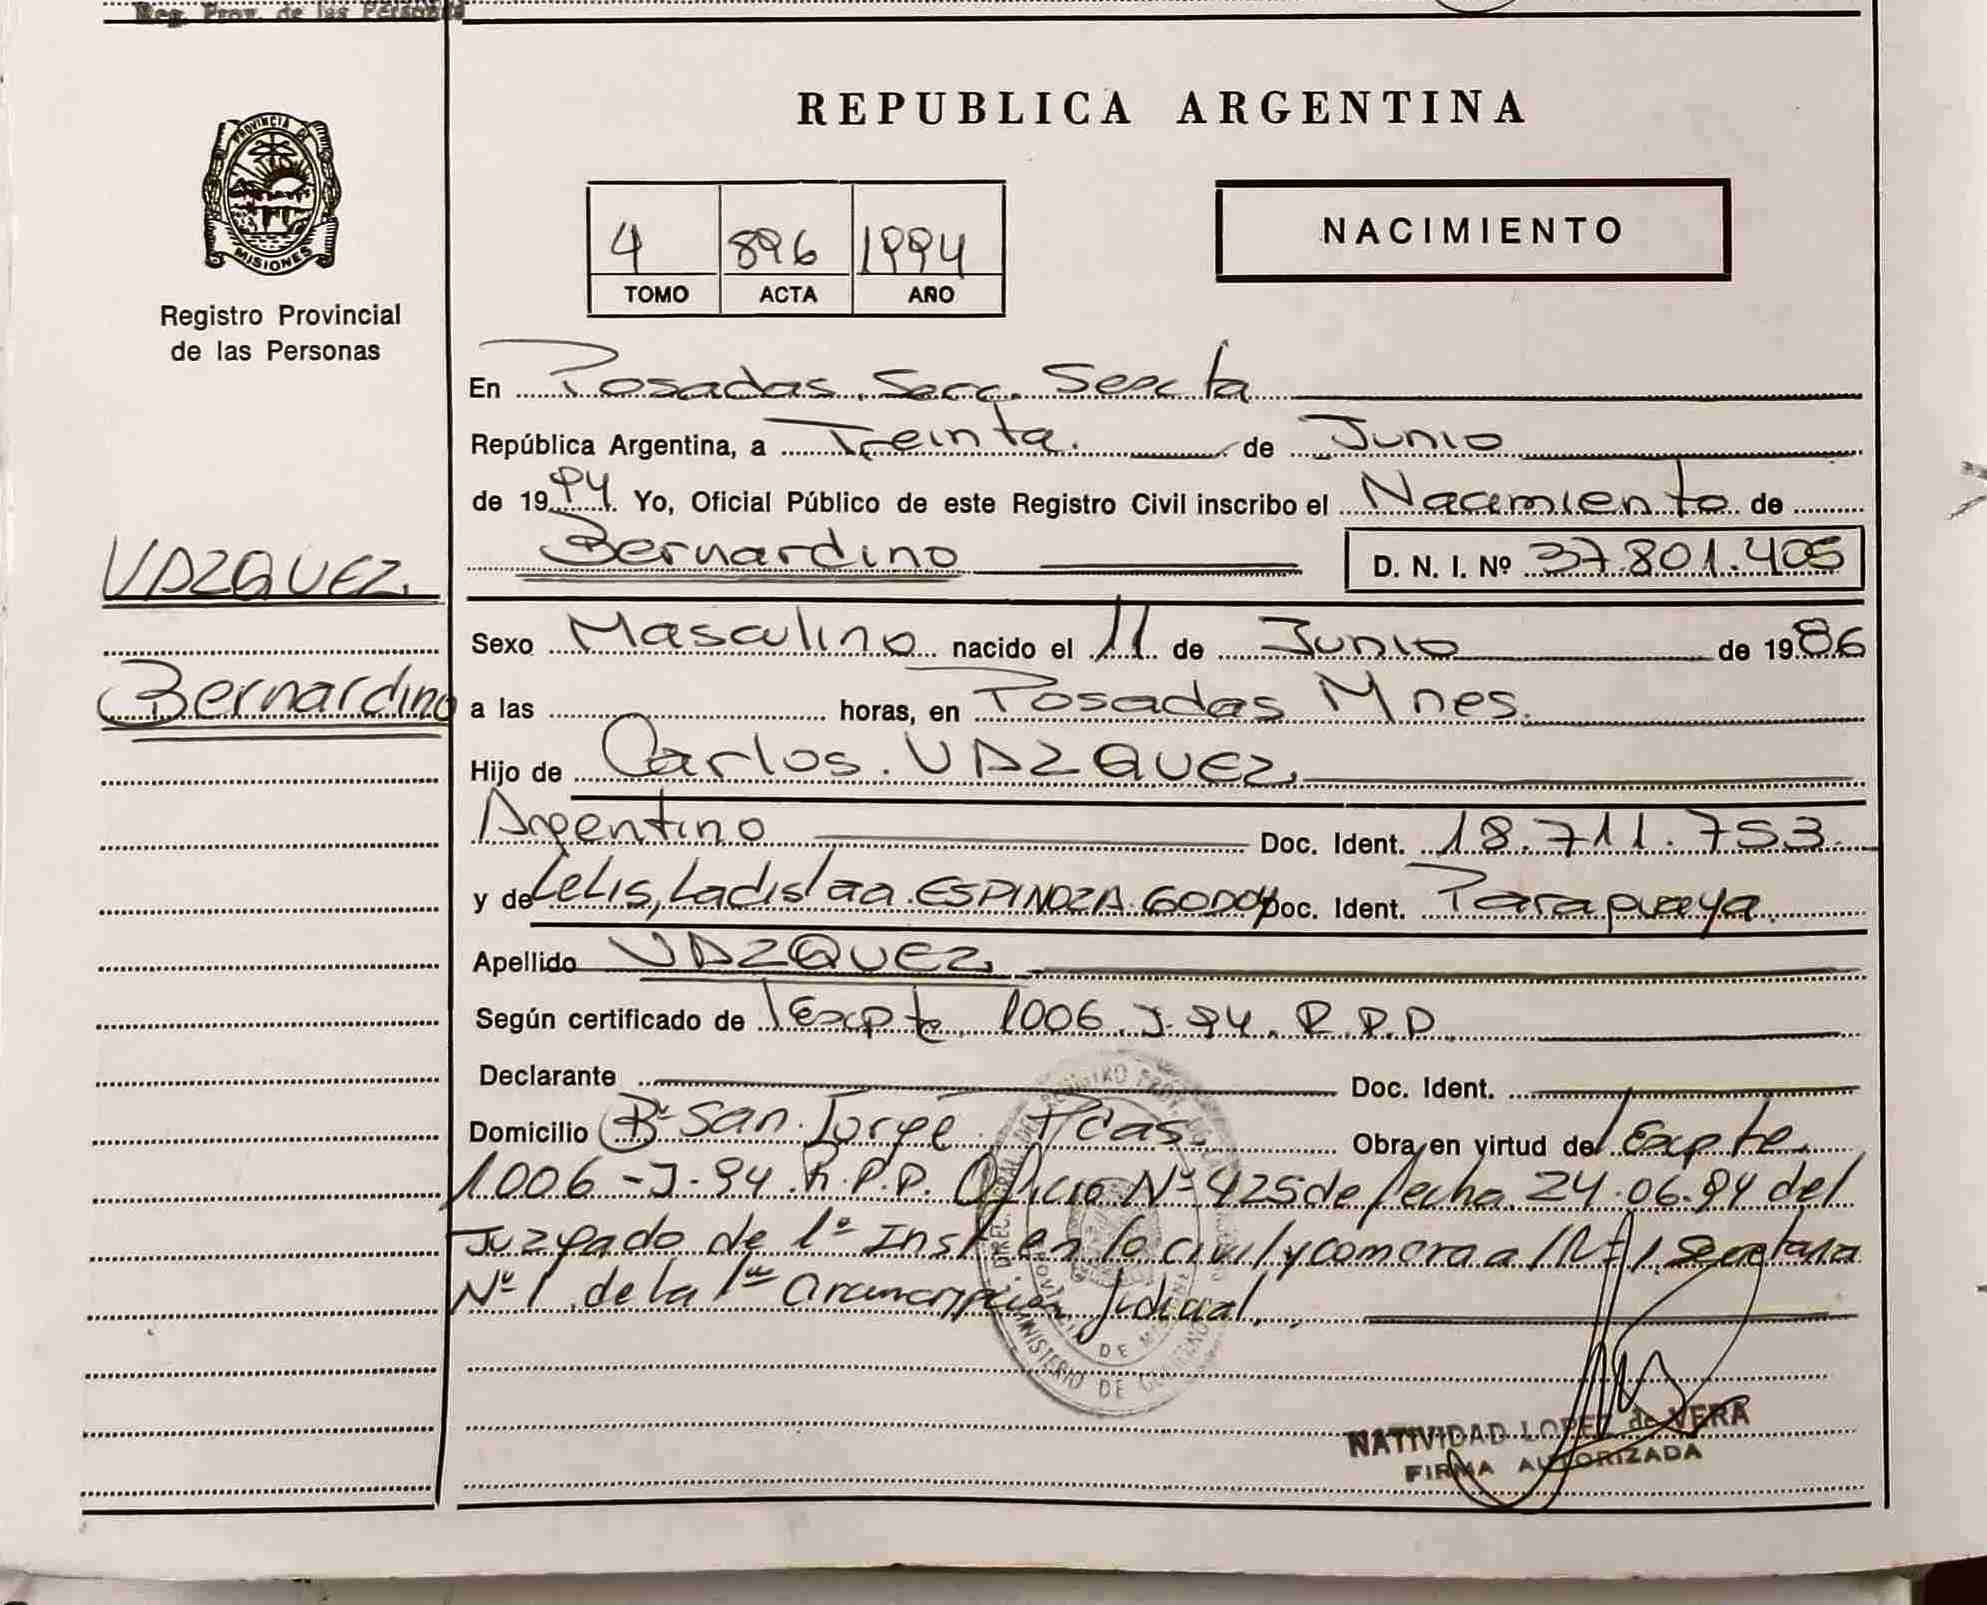 Reg. Prov. de las Personas
PROVINCIA DE
MISIONES
Registro Provincial
de las Personas
VAZQUEZ.
Bernardino
REPUBLICA ARGENTINA
4 896 1994
TOMO ACTA AÑO
NACIMIENTO
En Posadas. Secc. Sexta
República Argentina, a Treinta. de Junio
de 1994. Yo, Oficial Público de este Registro Civil inscribo el Nacimiento de
Bernardino D. N. I. Nº 37.801.405
Sexo Masculino nacido el 11 de Junio de 1986
a las horas, en Posadas Mnes.
Hijo de Carlos. VAZQUEZ.
Argentino Doc. Ident. 18.711.753.
y de Lelis, Ladislaa. ESPINOZA. GODOY Doc. Ident. Paraguaya.
Apellido VAZQUEZ.
Según certificado de Expte. 1006. J. 94. R.P.P.
Declarante Doc. Ident.
Domicilio Bº San. Jorge. Pdas. Obra en virtud de Expte.
1006-J-94. R.P.P. Oficio Nº 425 de fecha 24.06.94 del
Juzgado de 1ª Inst. en lo civil y comercial Nº 1. Secretaria
Nº 1. de la 1ª Circunscripción Judicial.
MINISTERIO DE GOBIERNO
NATIVIDAD LOPEZ de VERA
FIRMA AUTORIZADA